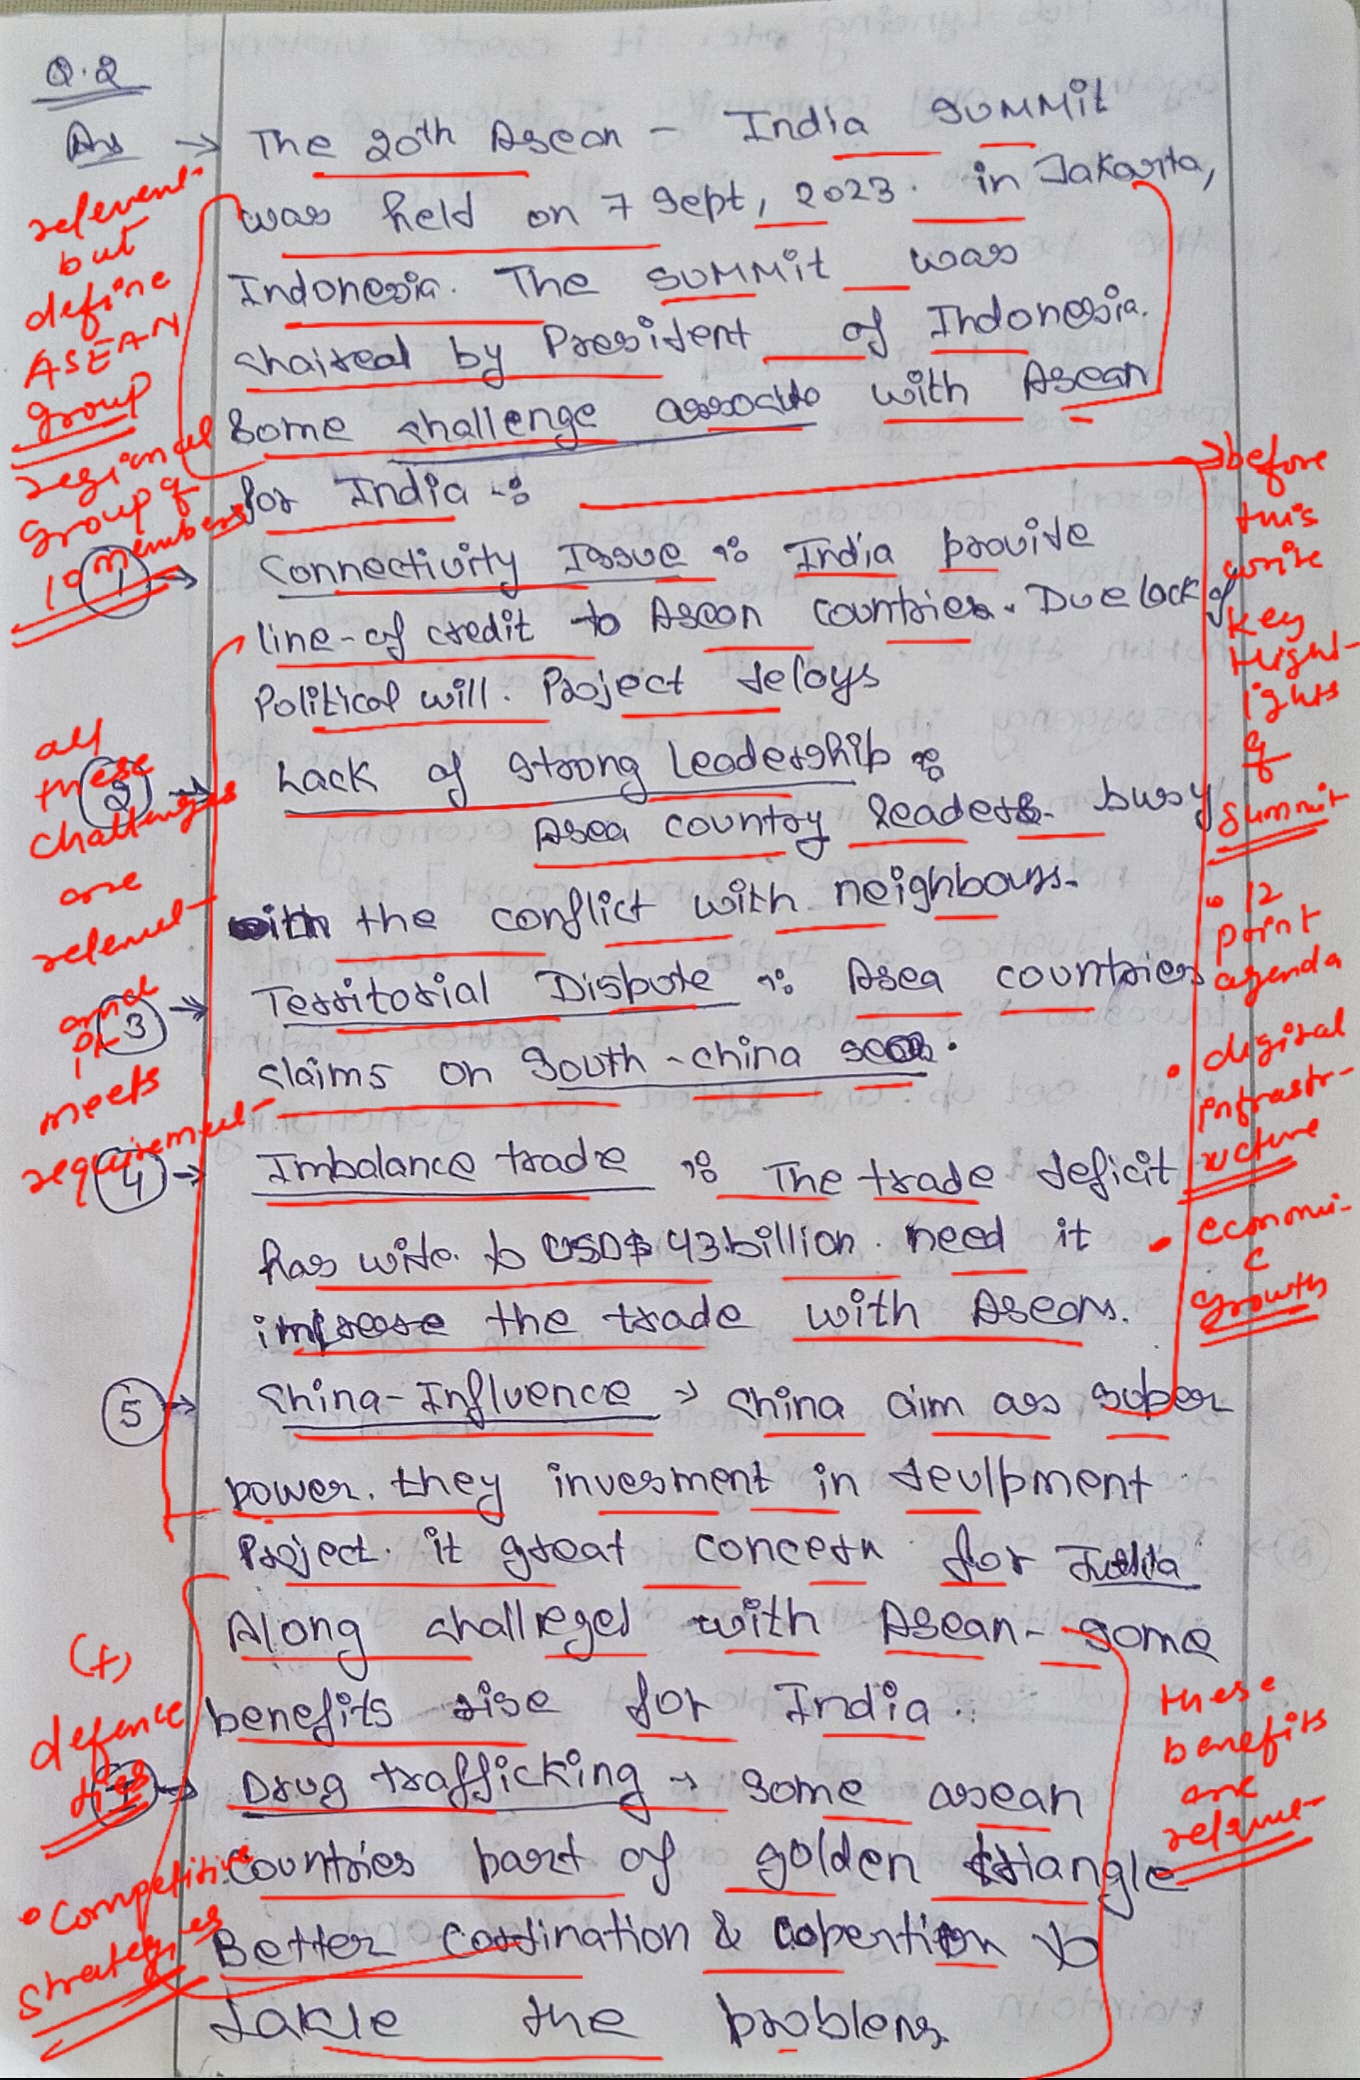 Q.2
Ans → The 20th Asean - India SUMMit
was held on 7 Sept, 2023. in Jakarta,
Indonesia. The SUMMit was
chaired by President of Indonesia.
Some challenge associate with Asean
for India :
relevent but define ASEAN group
regional group of 10 members
① → Connectivity Issue : India provide
line-of credit to Asean countries. Due lack of
Political will. Project delays
② → Lack of strong leadership :
Asea country leaders busy
with the conflict with neighbours.
③ → Territorial Dispute : Asea countries
claims on South-china sea.
④ → Imbalance trade : The trade deficit
has wide to USD$ 43.billion. need it
increase the trade with Aseans.
⑤ → China-Influence → China aim as super
power. they invesment in devlpment
Project. it great concern for India
all these challenges are relevent and it meets requirement
→ before this write key Hight-
ights of summit
• 12 point agenda
• digital infrastr-
ucture
• economi-
c growth
Along challeged with Asean- some
benefits rise for India.
① → Drug trafficking → some asean
countries part of golden triangle
Better cordination & copention to
takle the problems
(+) defence ties
• Competitive strategies
these benefits are relevent